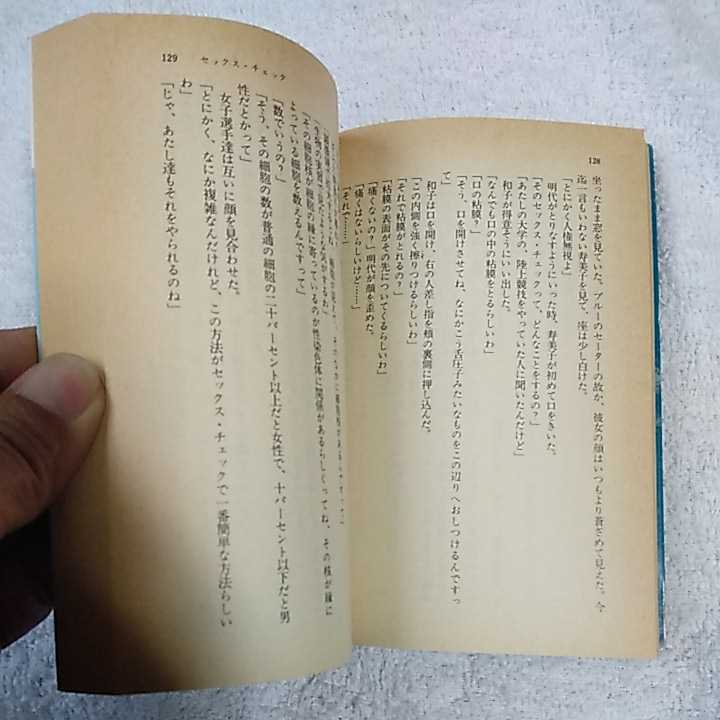 128
坐ったまま窓を見ていた。ブルーのセーターの故か、彼女の顔はいつもより蒼ざめて見えた。今
迄一言もいわない寿美子を見て、座は少し白けた。
「とにかく人権無視よ」
明代がとりなすようにいった時、寿美子が初めて口をきいた。
「そのセックス・チェックって、どんなことをするの？」
和子が得意そうにいい出した。
「あたしの大学の、陸上競技をやっていた人に聞いたんだけど」
「なんでも口の中の粘膜をとるらしいわ」
「口の粘膜？」
「そう、口を開けさせてね、なにかこう舌圧子みたいなものをこの辺りへおしつけるんですっ
て」
和子は口を開け、右の人差し指を頬の裏側に押し込んだ。
「この内側を強く擦りつけるらしいわ」
「それで粘膜がとれるの？」
「粘膜の表面がその先についてくるらしいわ」
「痛くないの？」明代が顔を歪めた。
「痛くはないらしいけど……」
「それで……」
129 セックス・チェック
「生物の実験で見たような
「その細胞核が細胞の縁に寄っているのか性染色体に関係があるらしくってね、その核が縁に
よっている細胞を数えるんですって」
「数でいうの？」
「そう、その細胞の数が普通の細胞の二十パーセント以上だと女性で、十パーセント以下だと男
性だとかって」
女子選手達は互いに顔を見合わせた。
「とにかく、なにか複雑なんだけれど、この方法がセックス・チェックで一番簡単な方法らしい
わ」
「じゃ、あたし達もそれをやられるのね」